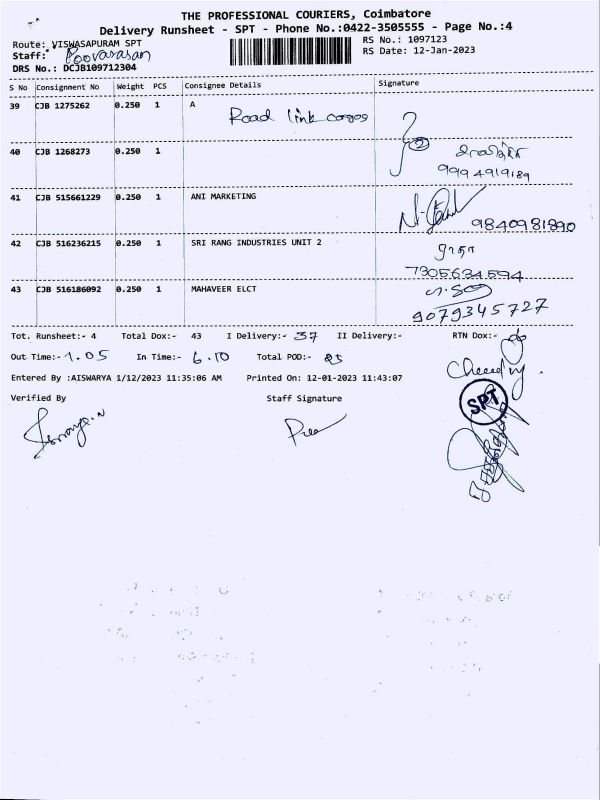 THE PROFESSIONAL COURIERS, Coimbatore
Delivery Runsheet - SPT - Phone No.:0422-3505555 - Page No.:4
Route: VISWASAPURAM SPT
RS No.: 1097123
Staff: Poovarasan
RS Date: 12-Jan-2023
DRS No.: DCJB109712304
S No Consignment No Weight PCS Consignee Details Signature
39 CJB 1275262 0.250 1 A Road link cargos
40 CJB 1268273 0.250 1
9994919189
41 CJB 515661229 0.250 1 ANI MARKETING
9840981890
42 CJB 516236215 0.250 1 SRI RANG INDUSTRIES UNIT 2
7305634594
43 CJB 516186092 0.250 1 MAHAVEER ELCT
9079345727
Tot. Runsheet:- 4 Total Dox:- 43 I Delivery:- 37 II Delivery:- RTN Dox:-
Out Time:- 1.05 In Time:- 6.10 Total POD:-
Entered By :AISWARYA 1/12/2023 11:35:06 AM Printed On: 12-01-2023 11:43:07
Verified By Staff Signature
SPT